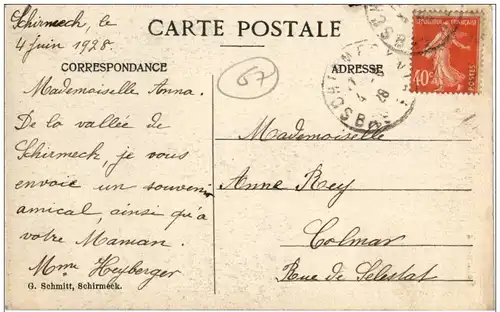 Schirmeck, le
4 juin 1928.
CARTE POSTALE
CORRESPONDANCE
Mademoiselle Anna.
De la vallée de
Schirmeck, je vous
envoie un souvenir
amical, ainsi qu'à
votre Maman.
Mme Heyberger
G. Schmitt, Schirmeck.
67
ADRESSE
Mademoiselle
Anne Rey
Colmar
Rue de Sélestat
REPUBLIQUE FRANÇAISE
40c
POSTES